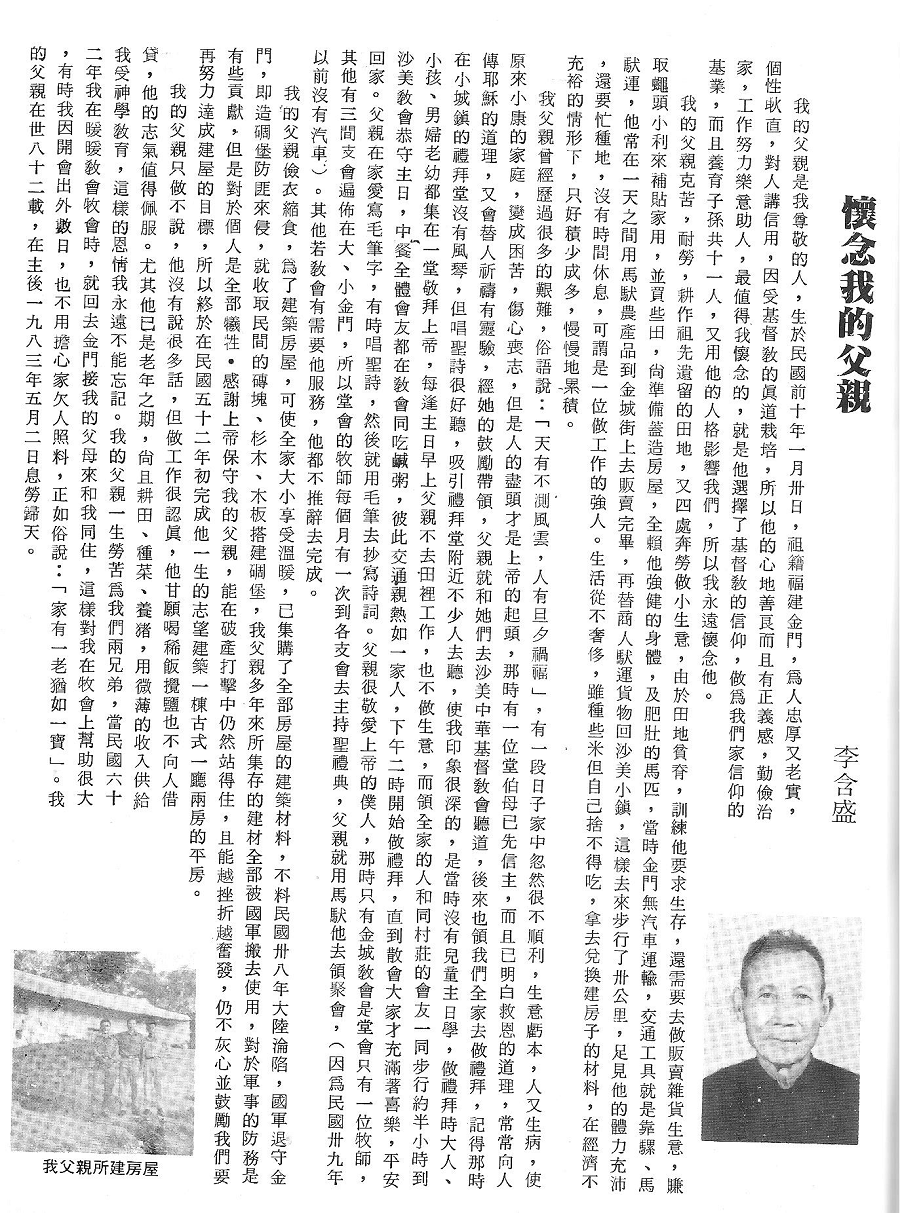 懷念我的父親
李含盛
我的父親是我尊敬的人，生於民國前十年一月卅日，祖籍福建金門，爲人忠厚又老實，
個性耿直，對人講信用，因受基督敎的眞道栽培，所以他的心地善良而且有正義感，勤儉治
家，工作努力樂意助人，最值得我懷念的，就是他選擇了基督敎的信仰，做爲我們家信仰的
基業，而且養育子孫共十一人，又用他的人格影響我們，所以我永遠懷念他。
我的父親克苦，耐勞，耕作祖先遺留的田地，又四處奔勞做小生意，由於田地貧脊，訓練他要求生存，還需要去做販賣雜貨生意，賺
取蠅頭小利來補貼家用，並買些田，尙準備蓋造房屋，全賴他強健的身體，及肥壯的馬匹，當時金門無汽車運輸，交通工具就是靠騾、馬
馱運，他常在一天之間用馬馱農產品到金城街上去販賣完畢，再替商人馱運貨物回沙美小鎭，這樣去來步行了卅公里，足見他的體力充沛
，還要忙種地，沒有時間休息，可謂是一位做工作的強人。生活從不奢侈，雖種些米但自己捨不得吃，拿去兌換建房子的材料，在經濟不
充裕的情形下，只好積少成多，慢慢地累積。
我父親曾經歷過很多的艱難，俗語說：「天有不測風雲，人有旦夕禍福」，有一段日子家中忽然很不順利，生意虧本，人又生病，使
原來小康的家庭，變成困苦，傷心喪志，但是人的盡頭才是上帝的起頭，那時有一位堂伯母已先信主，而且已明白救恩的道理，常常向人
傳耶穌的道理，又會替人祈禱有靈驗，經她的鼓勵帶領，父親就和她們去沙美中華基督敎會聽道，後來也領我們全家去做禮拜，記得那時
在小城鎭的禮拜堂沒有風琴，但唱聖詩很好聽，吸引禮拜堂附近不少人去聽，使我印象很深的，是當時沒有兒童主日學，做禮拜時大人、
小孩、男婦老幼都集在一堂敬拜上帝，每逢主日早上父親不去田裡工作，也不做生意，而領全家的人和同村莊的會友一同步行約半小時到
沙美敎會恭守主日，中餐全體會友都在敎會同吃鹹粥，彼此交通親熱如一家人，下午二時開始做禮拜，直到散會大家才充滿著喜樂，平安
回家。父親在家愛寫毛筆字，有時唱聖詩，然後就用毛筆去抄寫詩詞。父親很敬愛上帝的僕人，那時只有金城敎會是堂會只有一位牧師，
其他有三間支會遍佈在大、小金門，所以堂會的牧師每個月有一次到各支會去主持聖禮典，父親就用馬馱他去領聚會，（因爲民國卅九年
以前沒有汽車）。其他若敎會有需要他服務，他都不推辭去完成。
我的父親儉衣縮食，爲了建築房屋，可使全家大小享受溫暖，已集購了全部房屋的建築材料，不料民國卅八年大陸淪陷，國軍退守金
門，即造碉堡防匪來侵，就收取民間的磚塊、杉木、木板搭建碉堡，我父親多年來所集存的建材全部被國軍搬去使用，對於軍事的防務是
有些貢獻，但是對於個人是全部犧牲。感謝上帝保守我的父親，能在破產打擊中仍然站得住，且能越挫折越奮發，仍不灰心並鼓勵我們要
再努力達成建屋的目標，所以終於在民國五十二年初完成他一生的志望建築一棟古式一廳兩房的平房。
我的父親只做不說，他沒有說很多話，但做工作很認眞，他甘願喝稀飯攪鹽也不向人借
貸，他的志氣值得佩服。尤其他已是老年之期，尙且耕田、種菜、養猪，用微薄的收入供給
我受神學敎育，這樣的恩情我永遠不能忘記。我的父親一生勞苦爲我們兩兄弟，當民國六十
二年我在暖暖敎會牧會時，就回去金門接我的父母來和我同住，這樣對我在牧會上幫助很大
，有時我因開會出外數日，也不用擔心家欠人照料，正如俗說：「家有一老猶如一寶」。我
的父親在世八十二載，在主後一九八三年五月二日息勞歸天。
我父親所建房屋